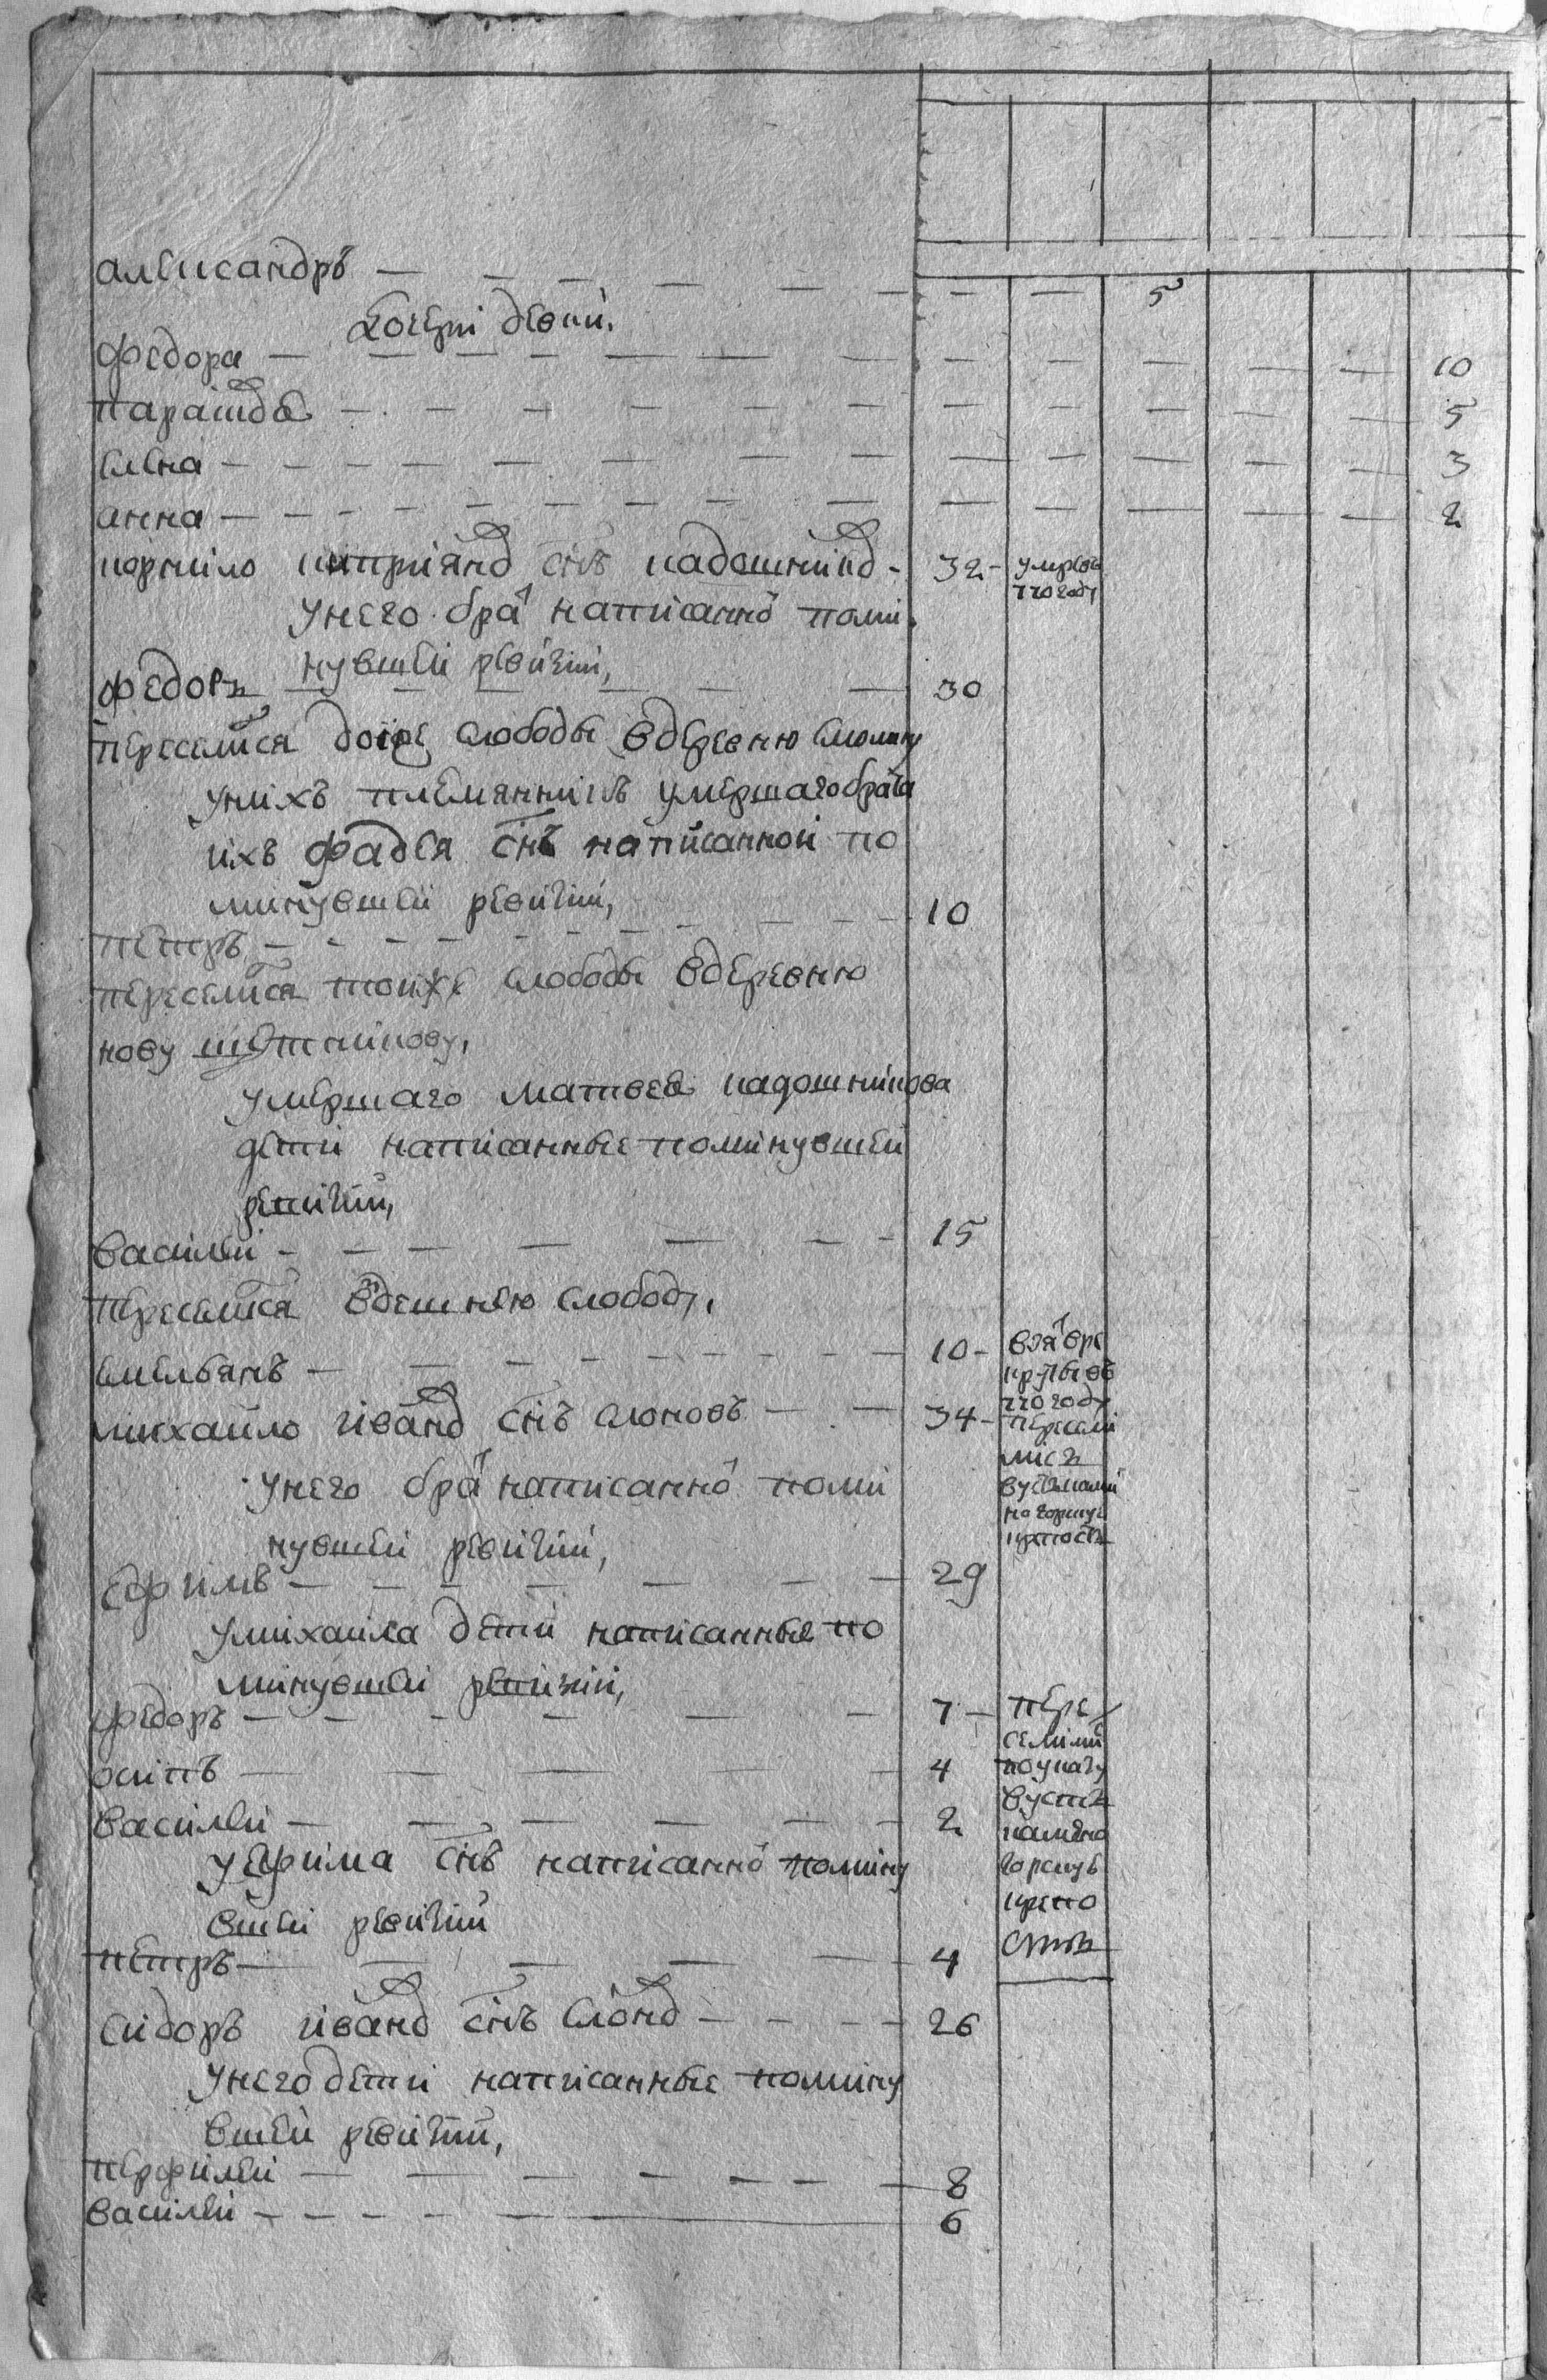 александръ — — — — — — — — 5
дочери девки,
федора — — — — — — — — — — — — 10
парасковь — — — — — — — — — — — 5
елена — — — — — — — — — — — — 3
анна — — — — — — — — — — — — 2
корнило киприяновъ снъ кадошниковъ - 32 - умре въ
770 году
у него братъ написанной поми
нувшей ревизии,
федоръ — — — — — — 30
переселился тоже слободы в деревню
у нихъ племянникъ умершаго брата
ихъ фадея снъ написанной по
минувшей ревизии,
петръ — — — — — — — — 10
переселился тойже слободы в деревню
нову
умершаго матвея кадошникова
дети написанные по минувшей
ревизии,
василей — — — — — — 15
переселился в здешнею слободу,
емельянъ — — — — — — — 10 - взятъ в ре
круты въ
770 году
михайло ивановъ снъ слоновъ — — 34 - пересели
лись
в усть камен
но горскую
крепость
у него братъ написанной поми
нувшей ревизии,
ефимъ — — — — — — 29
у михаила дети написанные по
минувшей ревизии,
федоръ — — — — — — 7 — пере
селились
осипъ — — — — — 4 по указу
в усть
василей — — — — — — 2 камено
у ефима снъ написанной по мину
горскую
вшей ревизии
крепо
петръ — — — — — 4 сть
сидоръ ивановъ снъ слоновъ — — — — 26
у него дети написанные по мину
вшей ревизии,
перфилей — — — — — — 8
василей — — — — — 6